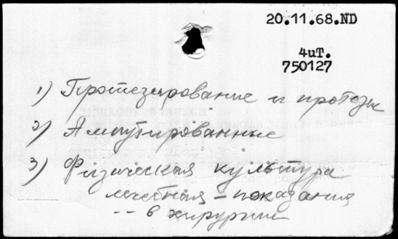 20.11.68.ND
4иТ.
750127
1) Протезирование и протезы
2) Ампутированные
3) Физическая культура
лечебная - показания
-- в хирургии